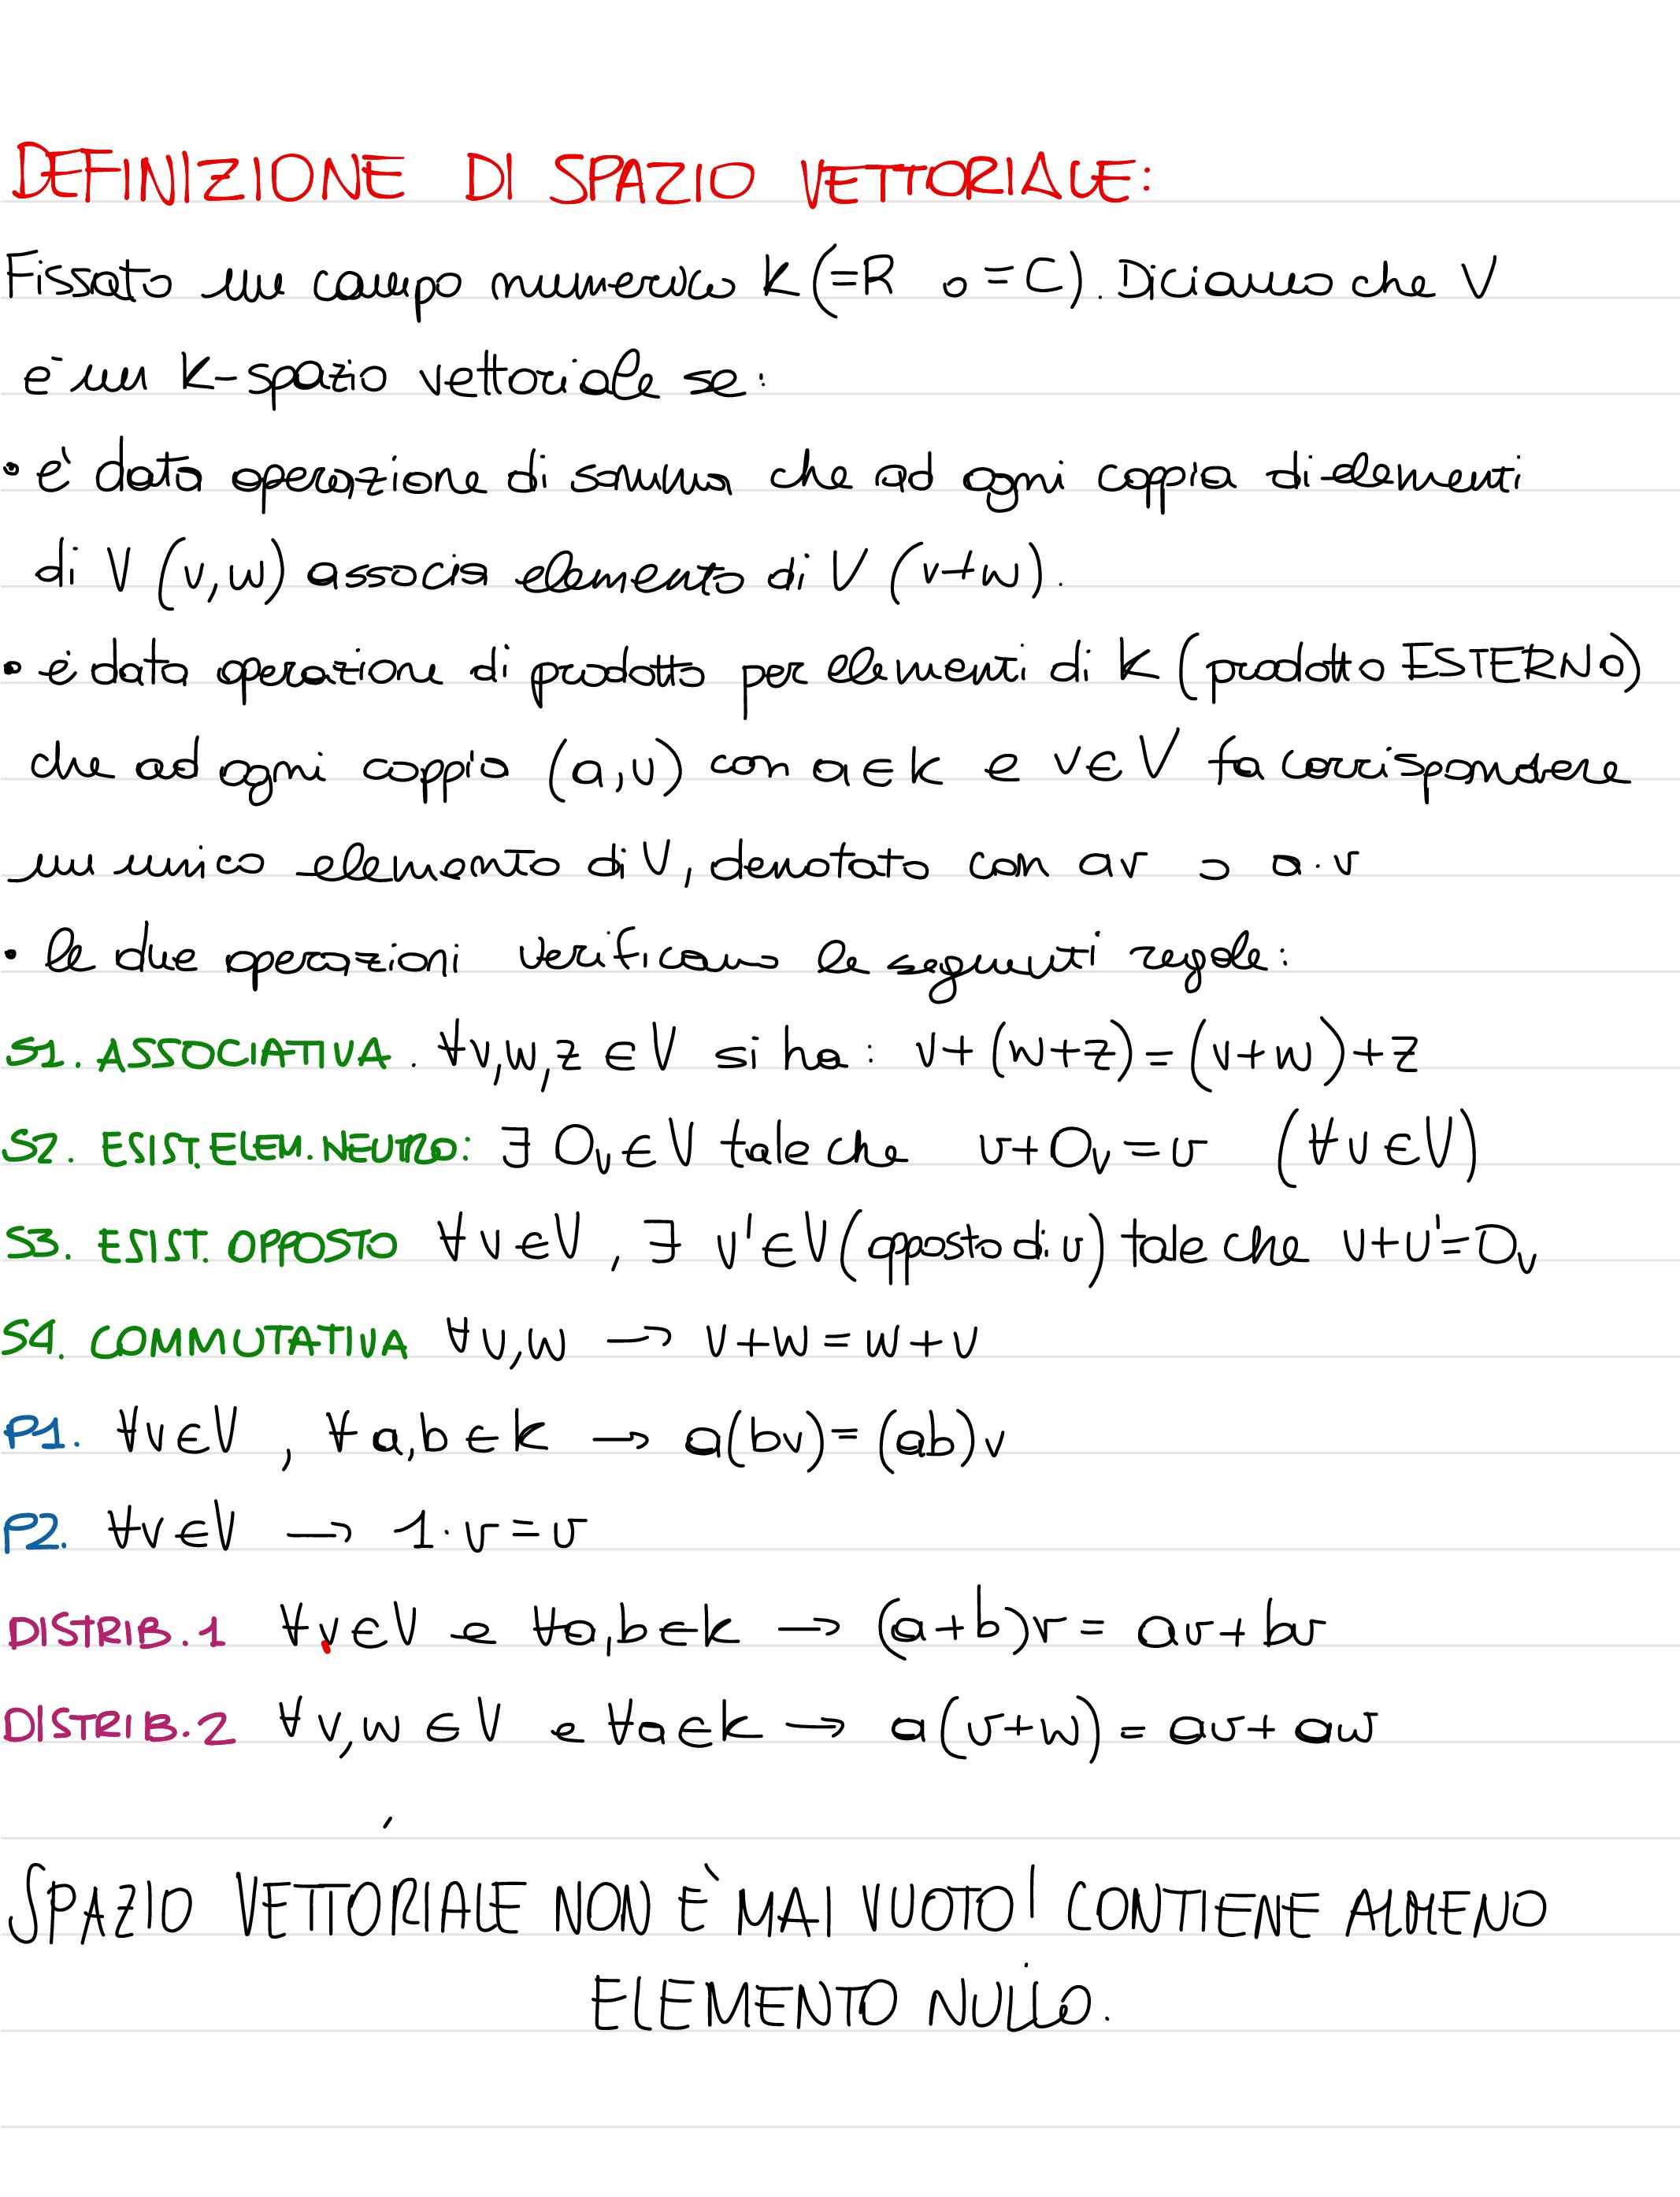 DEFINIZIONE DI SPAZIO VETTORIALE:
Fissato un campo numerico K (=R o =C). Diciamo che V
è un K-spazio vettoriale se:
• è data operazione di somma che ad ogni coppia di elementi
di V (v,w) associa elemento di V (v+w).
• è data operazione di prodotto per elementi di K (prodotto ESTERNO)
che ad ogni coppia (a,v) con a∈K e v∈V fa corrispondere
un unico elemento di V, denotato con av o a·v
• le due operazioni verificano le seguenti regole:
S1. ASSOCIATIVA. ∀v,w,z ∈V si ha: v+(w+z)=(v+w)+z
S2. ESIST.ELEM.NEUTRO: ∃ 0ᵥ∈V tale che v+0ᵥ=v (∀v∈V)
S3. ESIST. OPPOSTO ∀v∈V, ∃ v'∈V (opposto di v) tale che v+v'=0ᵥ
S4. COMMUTATIVA ∀v,w → v+w=w+v
P1. ∀v∈V, ∀a,b∈K → a(bv)=(ab)v
P2. ∀v∈V → 1·v=v
DISTRIB.1 ∀v∈V e ∀a,b∈K → (a+b)v= av+bv
DISTRIB.2 ∀v,w ∈V e ∀a∈K → a(v+w)=av+aw
SPAZIO VETTORIALE NON È MAI VUOTO! CONTIENE ALMENO
ELEMENTO NULLO.